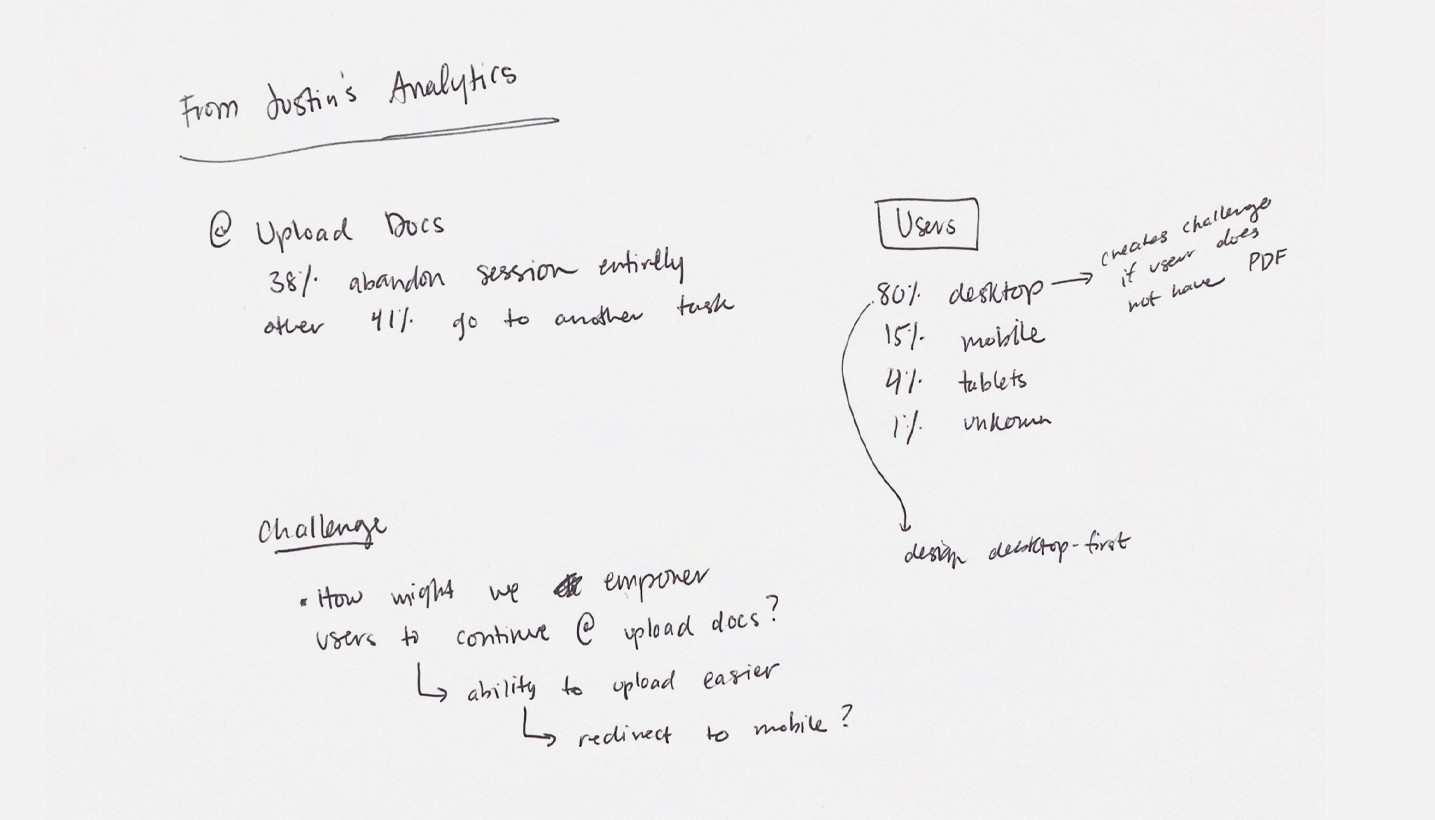 From Justin's Analytics
@ Upload Docs
38% abandon session entirely
other 41% go to another task
Users
80% desktop → creates challenge
if user does
not have PDF
15% mobile
4% tablets
1% unkown
design desktop-first
Challenge
• How might we empower
users to continue @ upload docs?
↳ ability to upload easier
↳ redirect to mobile?